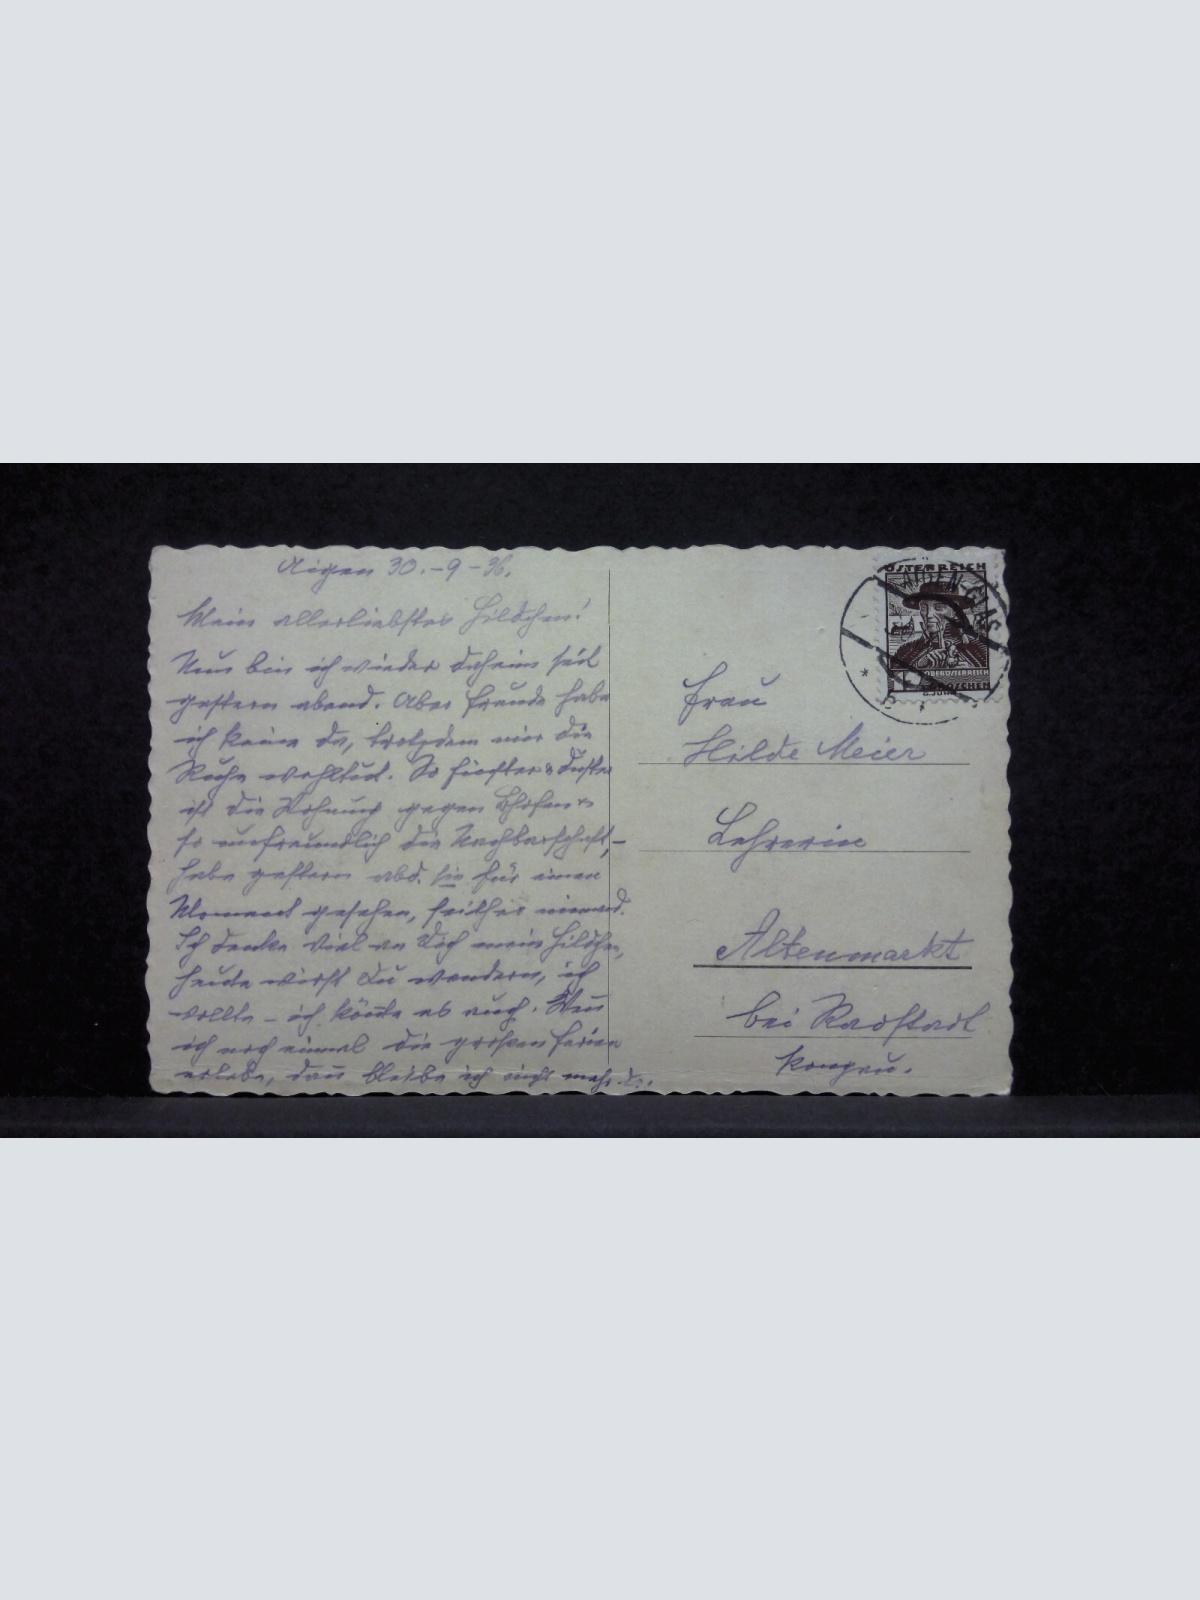 Aigen 30.-9-36.
Mein allerliebstes Hildchen!
Nun bin ich wieder daheim seit
gestern abend. Aber Freude habe
ich keine da, trotzdem mir die
Ruhe wohltut. So finster & duster
ist die Wohnung gegen &
so unfreundlich die Nachbarschaft,-
habe gestern abd. sie für einen
Moment gesehen, seither niemand.
Ich denke viel an Dich mein Hildchen,
heute wirst Du wandern, ich
wollte - ich könnte es auch. Wenn
ich noch einmal die großen Ferien
erlebe, dann bleibe ich nicht mehr da.
ÖSTERREICH
AIGEN-
OBERÖSTERREICH
GROSCHEN
Frau
Hilde Meier
Lehrerin
Altenmarkt
bei Radstadt
Pongau.